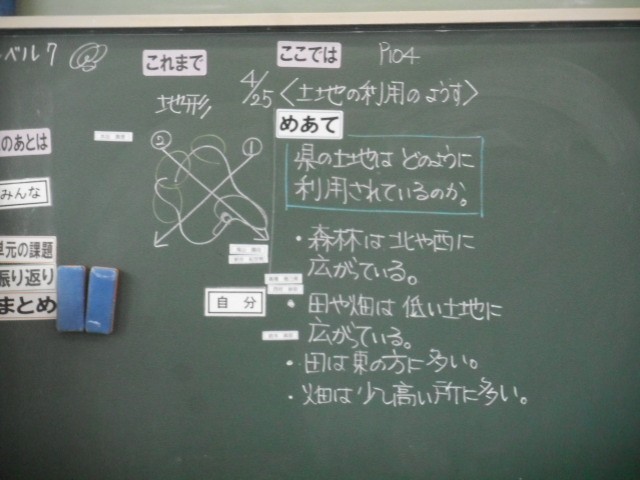 ベル7
これまで
ここでは
P104
地形
4/25 〈土地の利用のようす〉
めあて
のあとは
みんな
単元の課題
振り返り
まとめ
② ①
自分
県の土地は どのように
利用されているのか。
・森林は北や西に
広がっている。
・田や畑は低い土地に
広がっている。
・田は東の方に多い。
・畑は少し高い所に多い。